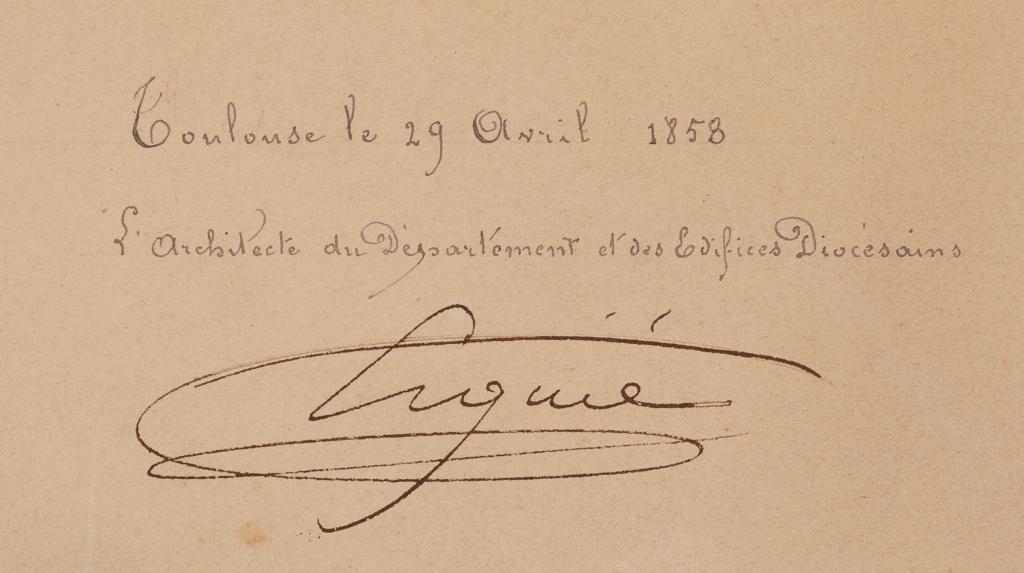 Toulouse le 29 Avril 1858
L'Architecte du Département et des Edifices Diocésains
Esquié